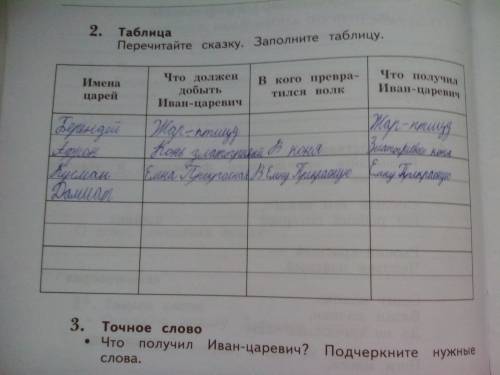 2. Таблица
Перечитайте сказку. Заполните таблицу.
Имена царей
Что должен добыть Иван-царевич
В кого превра-тился волк
Что получил Иван-царевич
Берендей Жар-птицу Жар-птицу
Афрон Коня златогривый В коня Златогривого коня
Кусман Елена Прекрасная В Елену Прекрасную Елену Прекрасную
Далмат
3. Точное слово
• Что получил Иван-царевич? Подчеркните нужные
слова.